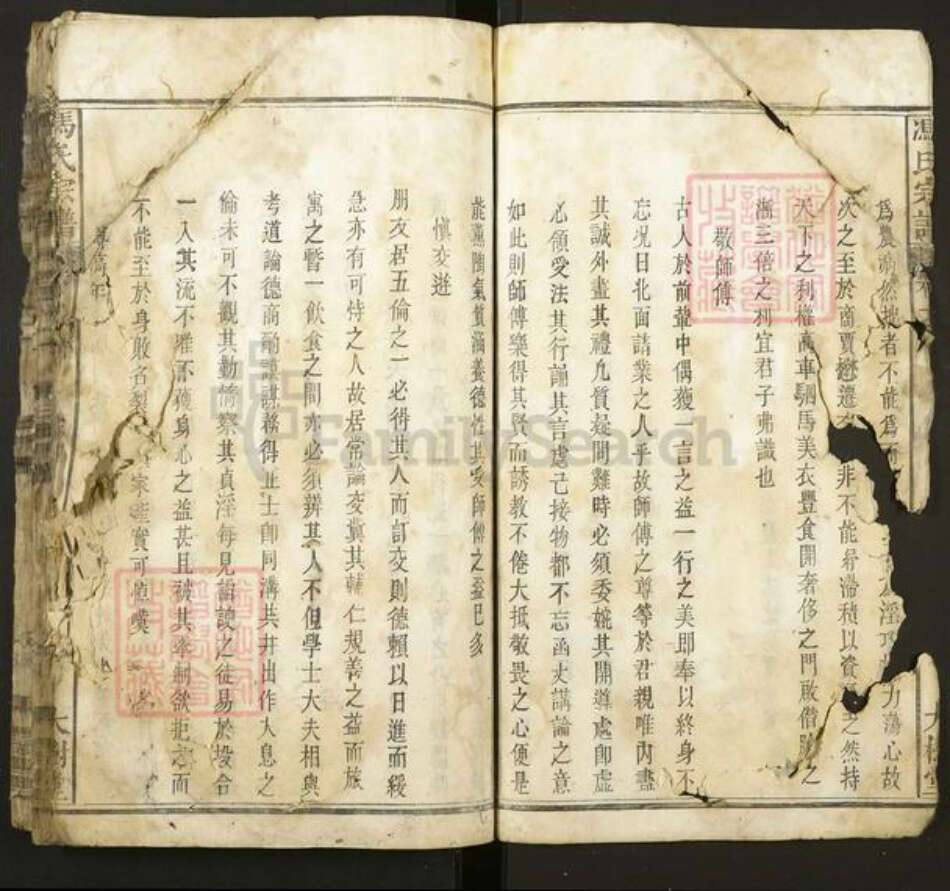 馮氏宗譜
大樹堂
為農 然 者不能為
淫巧 力蕩心故
次之至於商賈懋遷 非不能 滯積以資 之然持
天下之利權高車駟馬美衣豐食開奢侈之門啟僭 之
漸三倍之利宜君子弗識也
敬師傅
古人於前輩中偶獲一言之益一行之美即奉以終身不
忘况日北面請業之人乎故師傅之尊等於君親唯內盡
其誠外盡其禮凡質疑問難時必須委婉其開導處即虛
心領受法其行誦其言處己接物都不忘函丈講論之意
如此則師傅樂得其賢而誘教不倦大抵敬畏之心便是
能薰陶氣質涵養德性其受師傅之益已多
慎交遊
朋友居五倫之一必得其人而訂交則德賴以日進而緩
急亦有可恃之人故居常論交冀其輔仁規善之益而旅
寓之暫一飲食之間亦必須辨其人不但學士大夫相與
考道論德商 謨猷務得正士即同溝共井出作人息之
倫未可不觀其勤惰察其貞淫每見諂諛之徒易於投合
一入其流不惟不獲身心之益甚且被其牽制欲拒之而
不能至於身敗名裂 家產實可憤嘆
馮氏宗譜
大樹堂
FamilySearch